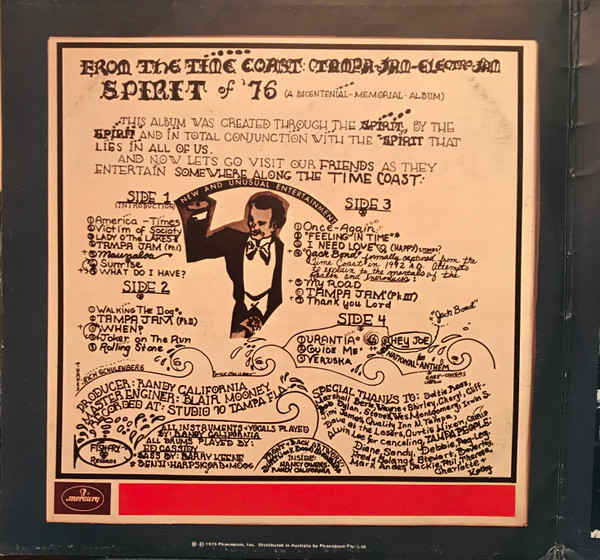 FROM THE TIME COAST: TAMPA-JAM-ELECTRO-JAM
SPIRIT of '76 (A BICENTENIAL-MEMORIAL-ALBUM)
THIS ALBUM WAS CREATED THROUGH THE SPIRIT, BY THE
SPIRIT AND IN TOTAL CONJUNCTION WITH THE "SPIRIT THAT
LIES IN ALL OF US.
AND NOW LETS GO VISIT OUR FRIENDS AS THEY
ENTERTAIN SOMEWHERE ALONG THE TIME COAST:
NEW AND UNUSUAL ENTERTAINMENT
SIDE 1
(INTRODUCTION)
① America - Times
② Victim of Society
③ LADY O' THE LAKES
④ TAMPA JAM (Pt.I)
⑤ Maunaloa
⑥ Sunrise
⑦ WHAT DO I HAVE?
SIDE 2
① WALKING THE DOG
② TAMPA JAM (Pt.II)
③ WHEN?
④ Joker on The Run
⑤ Rolling Stone
SIDE 3
① Once-Again
② "FEELING IN TIME"
③ I NEED LOVE (HAPPY)
④ "Jack Bond" formally captured from the
Time Coast in 1992 A.D. Attempts
to explain to the mortals of the
⑤ MY ROAD
⑥ TAMPA JAM (Pt.III)
⑦ Thank You Lord
SIDE 4
"Jack Bond"
① URANTIA ④ HEY JOE
② GUIDE ME
③ VERUSKA
NATIONAL-ANTHEM
THANKS
RICH SCHULENBERG
PRODUCER: RANDY CALIFORNIA
MASTER ENGINEER: BLAIR MOONEY
RECORDED AT: STUDIO 70 TAMPA FLA.
ALL INSTRUMENTS + VOCALS PLAYED
BY: RANDY CALIFORNIA
ALL DRUMS PLAYED BY:
ED CASSIDY
BASS BY: BARRY KEENE
BENJI: HARPSICORD + MOOG
FISH-FRY
RECORDS
INSIDE:
NANCY
RANDY CALIFORNIA
SPECIAL THANKS TO: Bettie
Marshall Berle, Wayne + Shirley, Cheryl, Cliff,
Bob Dylan, Stones, Wes Montgomery, Irwin S.
Jim James, Quality Inn N. Tampa,
Dave at the Losers, Curtis Mixon,
Alvin Lee for Canceling, TAMPA PEOPLE:
Diane, Sandy, Debbie, Peg-Leg
Fred, Stewart, Beverly,
Marx Andes, Jackie, Phil
Charlotte +
Kathy
mercury
℗ © 1975 Phonogram, Inc. Distributed in Australia by Phonogram Pty. Ltd.